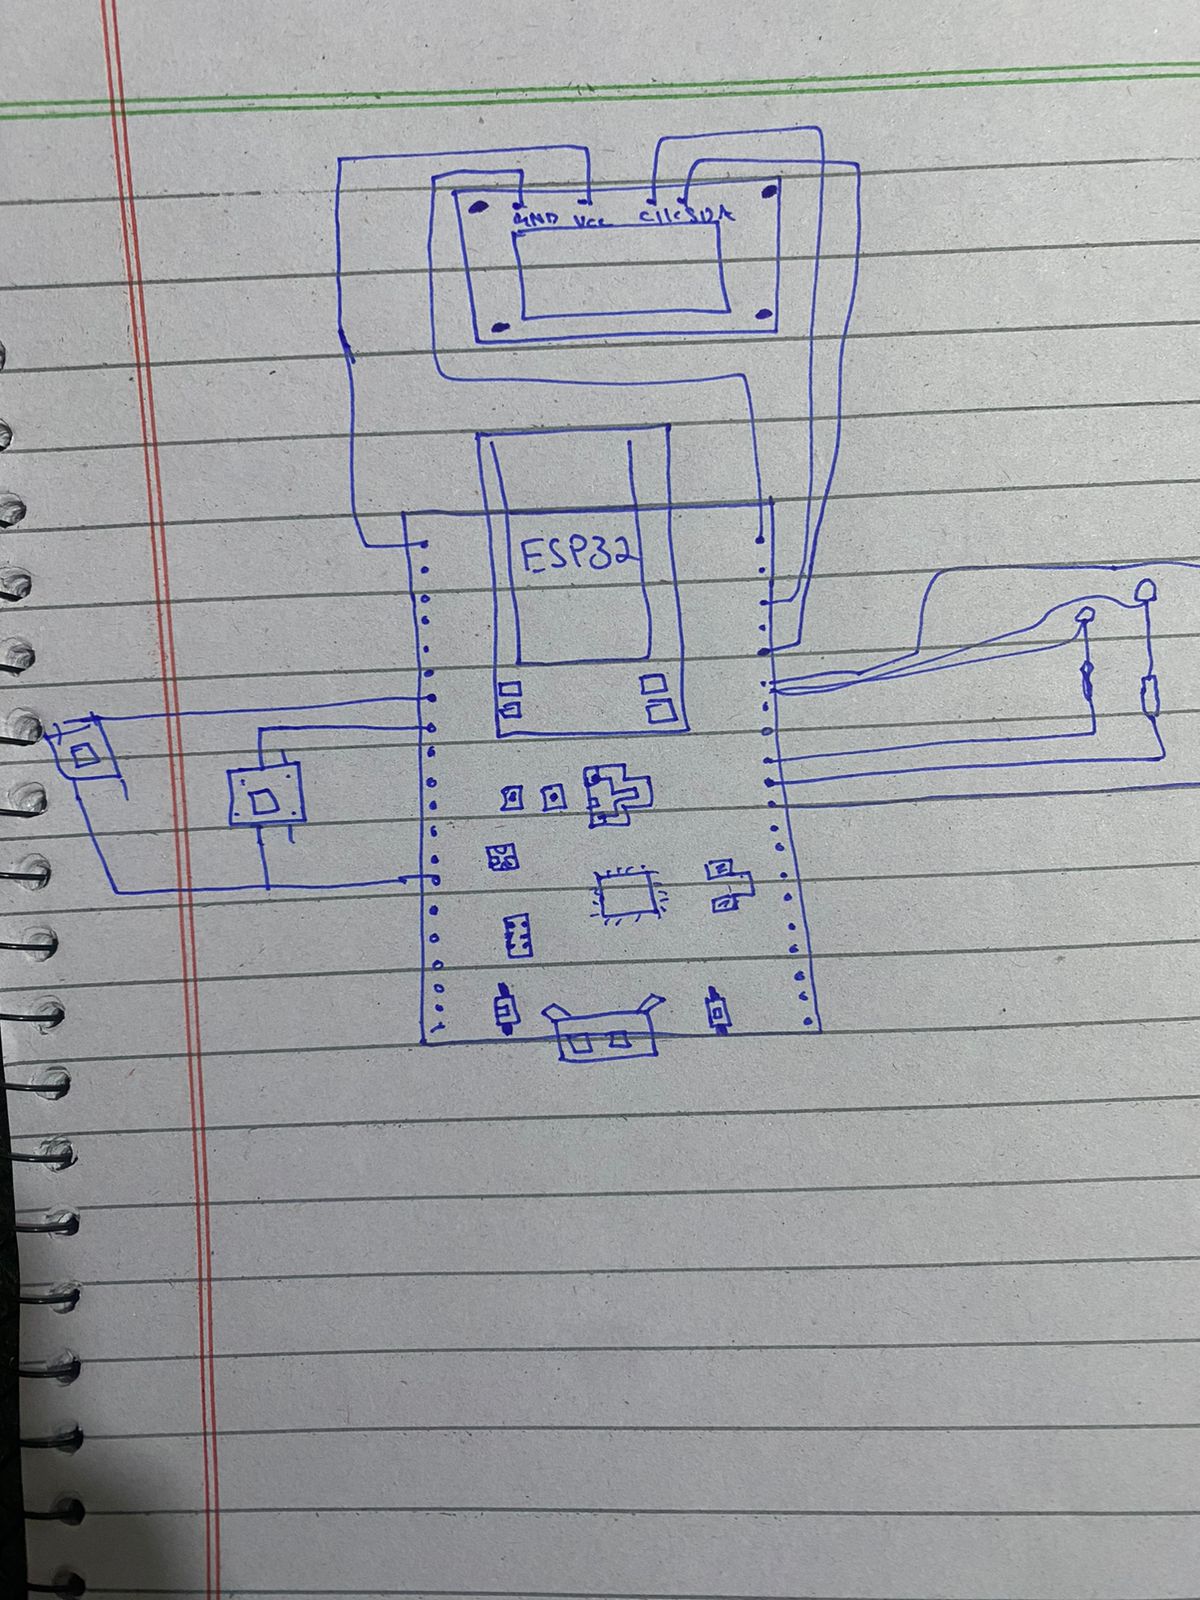 GND Vcc CllcSDA
ESP32